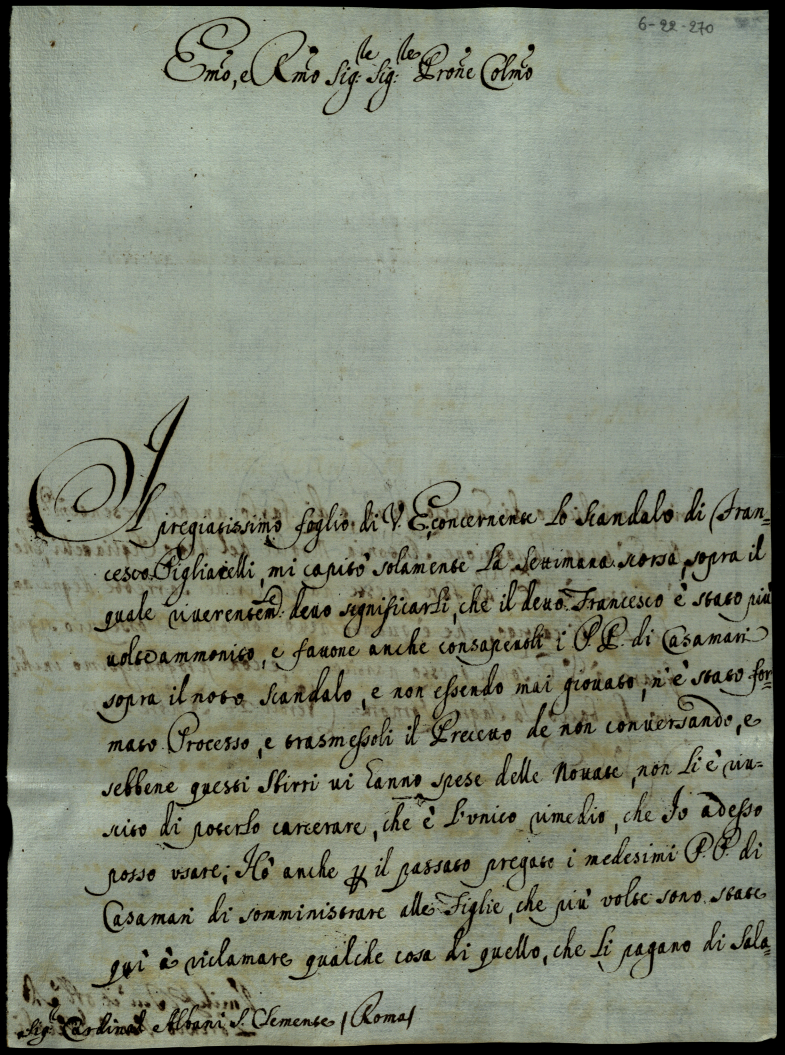 6-22-270
Emo, e Rmo Sig:re Sig:re Prone Colmo
Il pregiatissimo foglio di V. E. concernente lo scandalo di Fran=
cesco Pigliacelli, mi capitò solamente la Settimana scorsa, sopra il
quale riverentemte devo significarli, che il detto Francesco è stato più
volte ammonito, e fattone anche consapevoli i P.P. di Casamari
sopra il noto scandalo, e non essendo mai giovato, n'è stato for=
mato Processo, e trasmessoli il Precetto de non conversando, e
sebbene questi Sbirri vi hanno spese delle Nottate, non li è riu=
scito di poterlo carcerare, che è l'unico rimedio, che Io adesso
posso usare; Hò anche per il passato pregato i medesimi P.P. di
Casamari di somministrare alle Figlie, che più volte sono state
quì à riclamare qualche cosa di quello, che li pagano di Sala=
Sig.r Cardinal Albani S. Clemente / Roma /